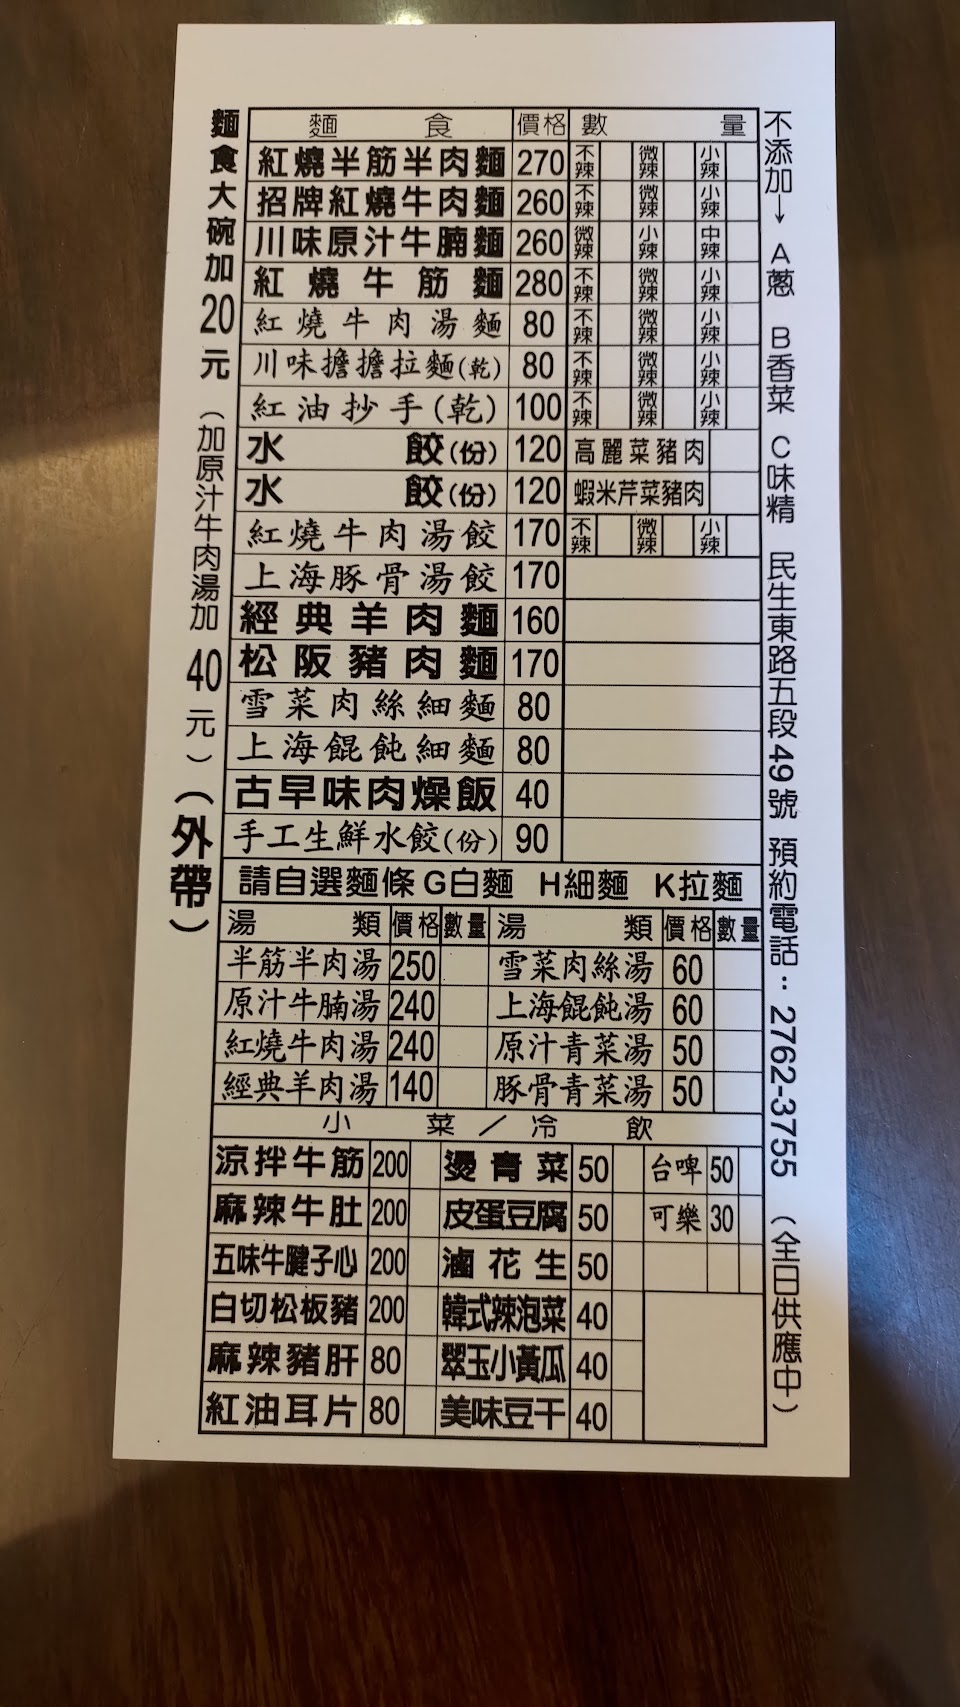 麵食 價格 數量
紅燒半筋半肉麵 270 不辣 微辣 小辣
招牌紅燒牛肉麵 260 不辣 微辣 小辣
川味原汁牛腩麵 260 微辣 小辣 中辣
紅燒牛筋麵 280 不辣 微辣 小辣
紅燒牛肉湯麵 80 不辣 微辣 小辣
川味擔擔拉麵(乾) 80 不辣 微辣 小辣
紅油抄手(乾) 100 不辣 微辣 小辣
水餃(份) 120 高麗菜豬肉
水餃(份) 120 蝦米芹菜豬肉
紅燒牛肉湯餃 170 不辣 微辣 小辣
上海豚骨湯餃 170
經典羊肉麵 160
松阪豬肉麵 170
雪菜肉絲細麵 80
上海餛飩細麵 80
古早味肉燥飯 40
手工生鮮水餃(份) 90
請自選麵條 G白麵 H細麵 K拉麵
湯類 價格 數量 湯類 價格 數量
半筋半肉湯 250 雪菜肉絲湯 60
原汁牛腩湯 240 上海餛飩湯 60
紅燒牛肉湯 240 原汁青菜湯 50
經典羊肉湯 140 豚骨青菜湯 50
小菜／冷飲
涼拌牛筋 200 燙青菜 50 台啤 50
麻辣牛肚 200 皮蛋豆腐 50 可樂 30
五味牛腱子心 200 滷花生 50
白切松板豬 200 韓式辣泡菜 40
麻辣豬肝 80 翠玉小黃瓜 40
紅油耳片 80 美味豆干 40
麵食大碗加20元（加原汁牛肉湯加40元）（外帶）
不添加→ A蔥 B香菜 C味精 民生東路五段49號 預約電話：2762-3755 （全日供應中）